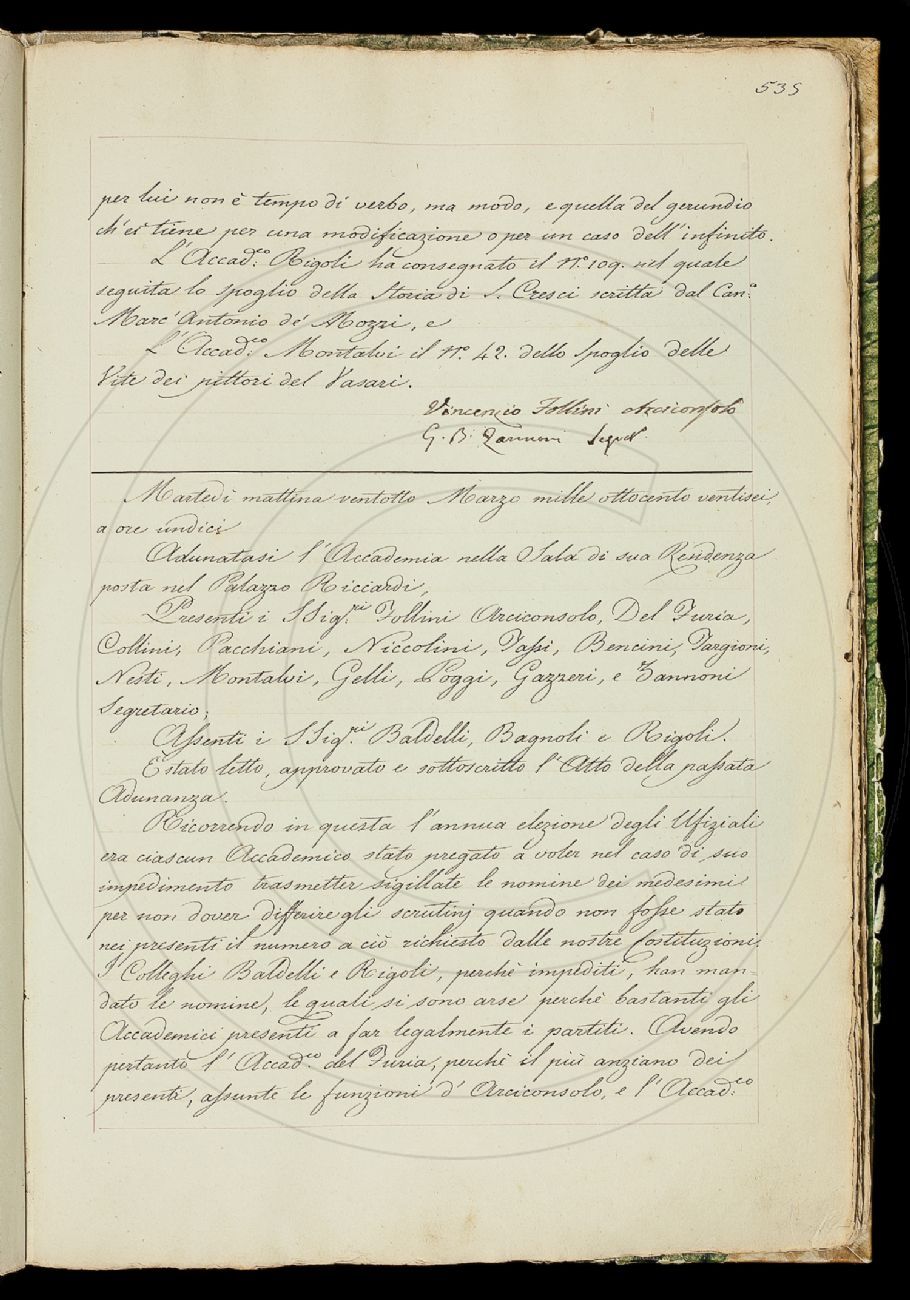 535
per lui non è tempo di verbo, ma modo, e quella del gerundio
ch'ei tiene per una modificazione o per un caso dell'infinito.
L'Accad.co Rigoli ha consegnato il N.o 109. nel quale
seguita lo spoglio della Storia di S. Cresci scritta dal Can.o
Marc'Antonio de' Mozzi, e
L'Accad.co Montalvi il N.o 42. dello spoglio delle
Vite dei pittori del Vasari.
Vincenzio Follini Arciconsolo
G. B. Zannoni Segret.
Martedì mattina ventotto Marzo mille ottocento ventisei,
a ore undici
Adunatasi l'Accademia nella Sala di sua Residenza
posta nel Palazzo Riccardi,
Presenti i SSig.ri Follini Arciconsolo, Del Furia,
Collini, Pacchiani, Niccolini, Tassi, Bencini, Targioni,
Nesti, Montalvi, Gelli, Poggi, Gazzeri, e Zannoni
Segretario;
Assenti i SSig.ri Baldelli, Bagnoli e Rigoli.
È stato letto, approvato e sottoscritto l'Atto della passata
Adunanza.
Ricorrendo in questa l'annua elezione degli Ufiziali
era ciascun Accademico stato pregato a voler nel caso di suo
impedimento trasmetter sigillate le nomine dei medesimi
per non dover differire gli scrutinj quando non fosse stato
nei presenti il numero a ciò richiesto dalle nostre Costituzioni.
I Colleghi Baldelli e Rigoli, perchè impediti, han man=
dato le nomine, le quali si sono arse perchè bastanti gli
Accademici presenti a far legalmente i partiti. Avendo
pertanto l'Accad.co del Furia, perchè il più anziano dei
presenti, assunte le funzioni d'Arciconsolo, e l'Accad.co